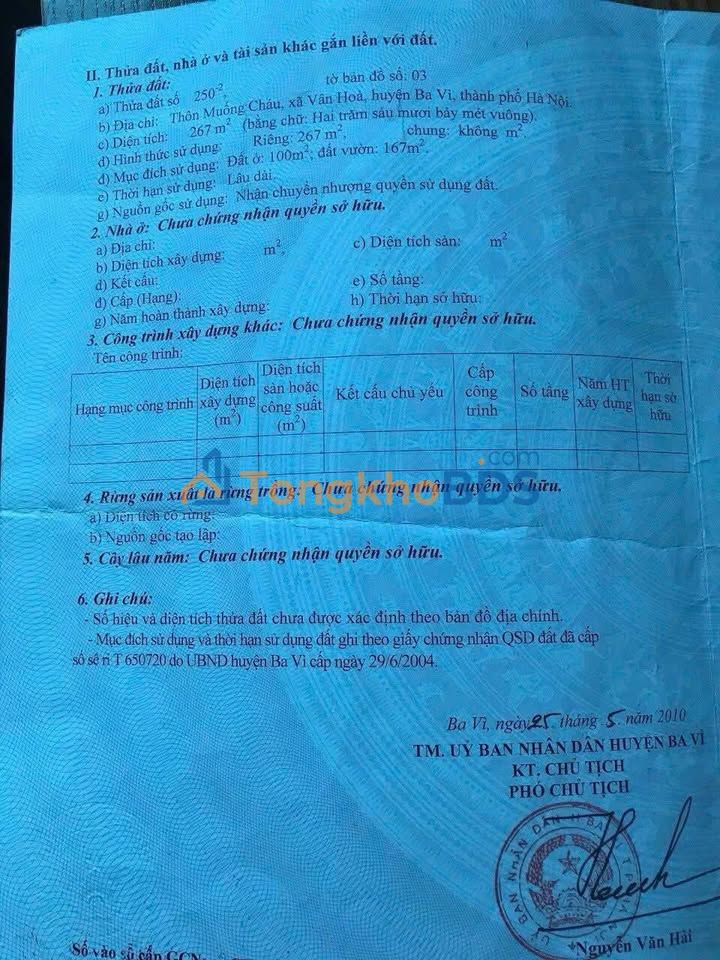 II. Thửa đất, nhà ở và tài sản khác gắn liền với đất.
1. Thửa đất:
a) Thửa đất số 250-2, tờ bản đồ số: 03
b) Địa chỉ: Thôn Muồng Cháu, xã Vân Hoà, huyện Ba Vì, thành phố Hà Nội.
c) Diện tích: 267 m2 (bằng chữ: Hai trăm sáu mươi bảy mét vuông).
d) Hình thức sử dụng: Riêng: 267 m2, chung: không m2.
đ) Mục đích sử dụng: Đất ở: 100m2; đất vườn: 167m2.
e) Thời hạn sử dụng: Lâu dài.
g) Nguồn gốc sử dụng: Nhận chuyển nhượng quyền sử dụng đất.
2. Nhà ở: Chưa chứng nhận quyền sở hữu.
a) Địa chỉ:
b) Diện tích xây dựng: m2, c) Diện tích sàn: m2
d) Kết cấu: e) Số tầng:
đ) Cấp (Hạng): h) Thời hạn sở hữu:
g) Năm hoàn thành xây dựng:
3. Công trình xây dựng khác: Chưa chứng nhận quyền sở hữu.
Tên công trình:
Hạng mục công trình Diện tích xây dựng (m2) Diện tích sàn hoặc công suất (m2) Kết cấu chủ yếu Cấp công trình Số tầng Năm HT xây dựng Thời hạn sở hữu
TongkhoBDS.com
4. Rừng sản xuất là rừng trồng: Chưa chứng nhận quyền sở hữu.
a) Diện tích có rừng:
b) Nguồn gốc tạo lập:
5. Cây lâu năm: Chưa chứng nhận quyền sở hữu.
6. Ghi chú:
- Số hiệu và diện tích thửa đất chưa được xác định theo bản đồ địa chính.
- Mục đích sử dụng và thời hạn sử dụng đất ghi theo giấy chứng nhận QSD đất đã cấp
số sê ri T 650720 do UBND huyện Ba Vì cấp ngày 29/6/2004.
Ba Vì, ngày 25 tháng 5 năm 2010
TM. UỶ BAN NHÂN DÂN HUYỆN BA VÌ
KT. CHỦ TỊCH
PHÓ CHỦ TỊCH
Nguyễn Văn Hải
Số vào sổ cấp GCN: